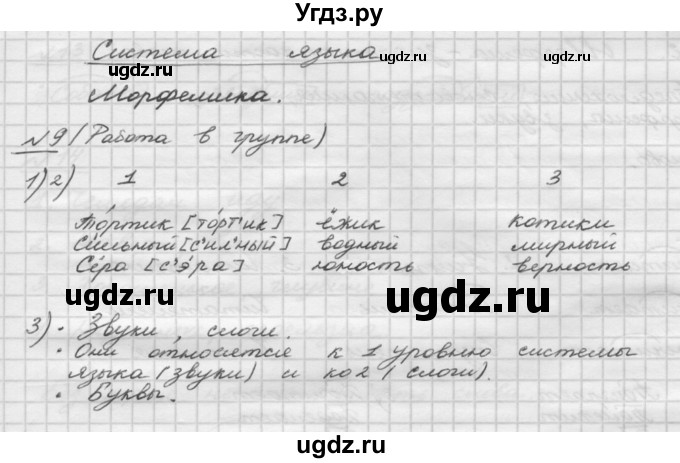 Угдз.ру
Система языка
ugdz.ru ugdz.ru ugdz.ru
Морфемика.
№9 (Работа в группе)
1) 2) 1 2 3
То́ртик [то́рт'ик] ёжик котики
Си́льный [с'ил'ный] водный мирный
Се́ра [с'э́ра] юность верность
ugdz.ru ugdz.ru ugdz.ru
3) • Звуки, слоги.
• Они относятся к 1 уровню системы
языка (звуки) и ко 2 (слоги).
• Буквы.
ugdz.ru